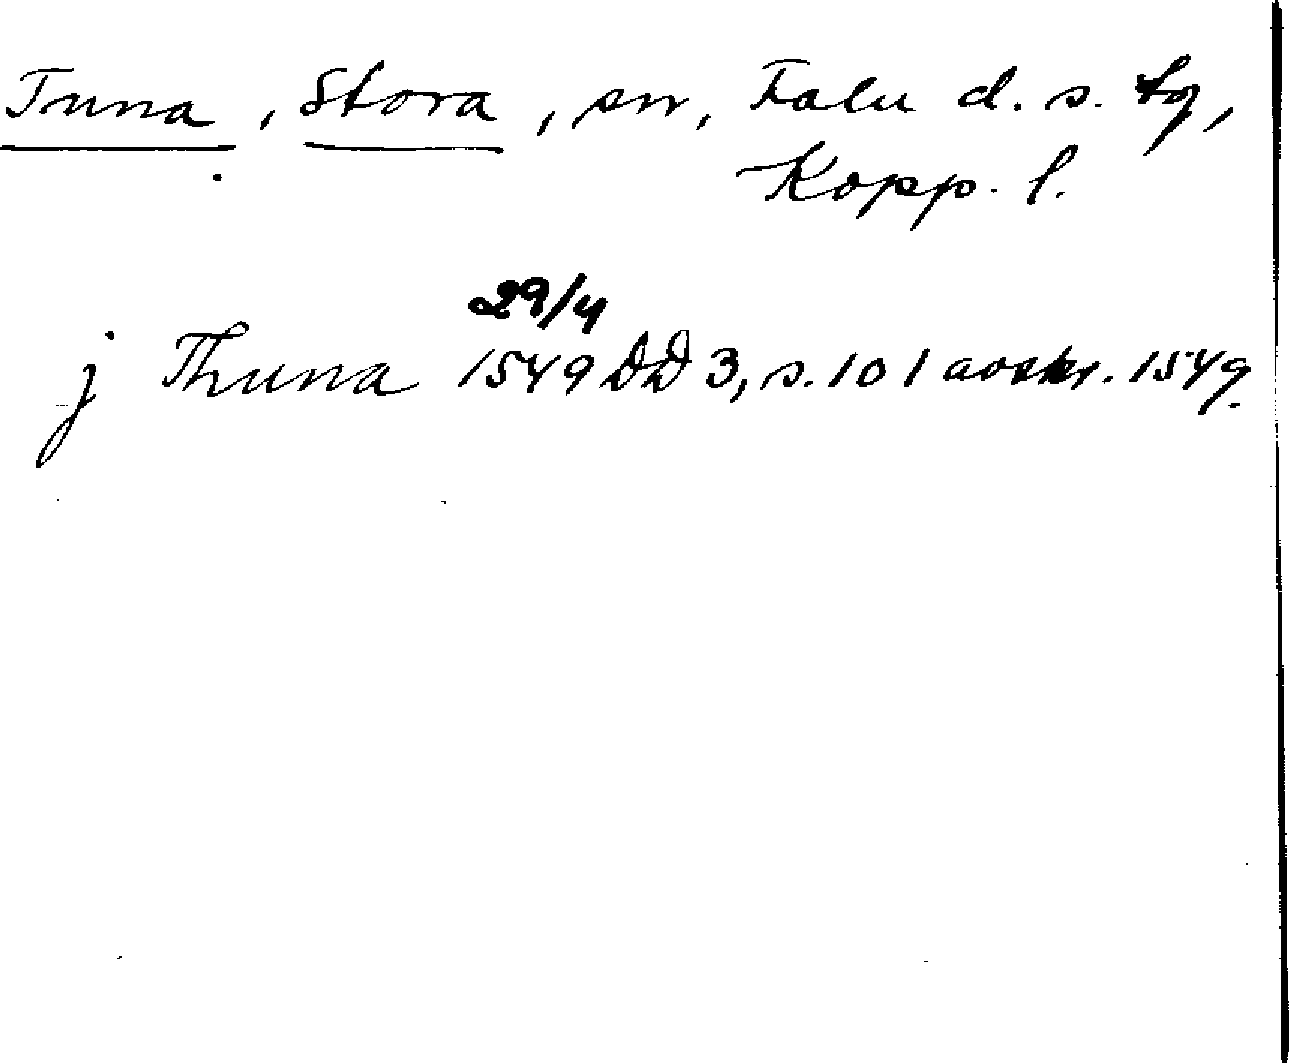 Tuna, Stora, sn, Falu d. s. tg,
Kopp. l.
29/4
j Thuna 1549 DD 3, s. 101 avskr. 1549.